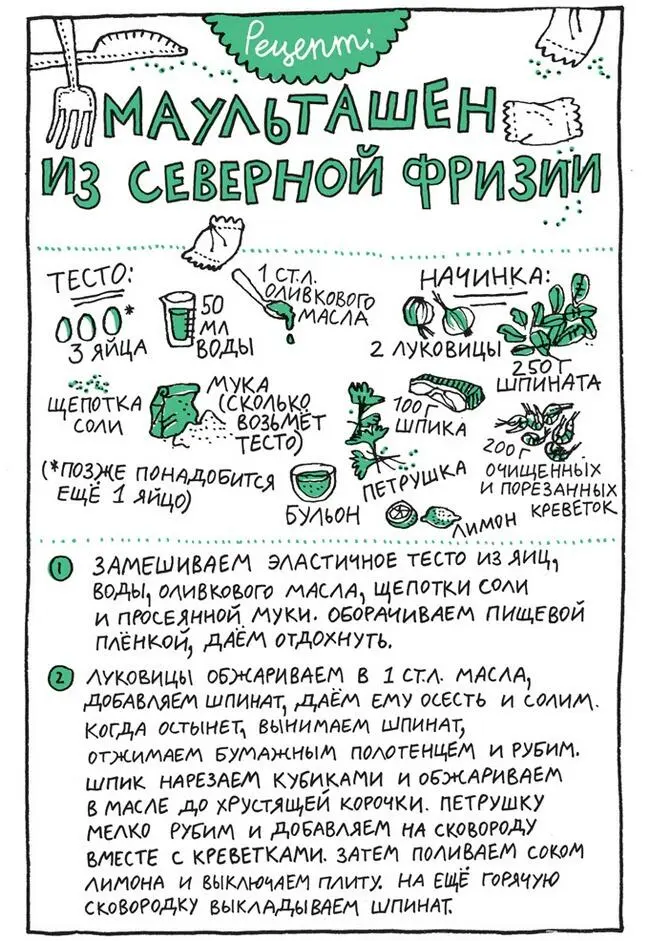 Рецепт:
МАУЛЬТАШЕН
ИЗ СЕВЕРНОЙ ФРИЗИИ
ТЕСТО:
3 ЯЙЦА*
50
МЛ
ВОДЫ
1 СТ.Л.
ОЛИВКОВОГО
МАСЛА
ЩЕПОТКА
СОЛИ
МУКА
(СКОЛЬКО
ВОЗЬМЁТ
ТЕСТО)
(*ПОЗЖЕ ПОНАДОБИТСЯ
ЕЩЁ 1 ЯЙЦО)
БУЛЬОН
НАЧИНКА:
2 ЛУКОВИЦЫ
250 Г
ШПИНАТА
100 Г
ШПИКА
ПЕТРУШКА
200 Г
ОЧИЩЕННЫХ
И ПОРЕЗАННЫХ
КРЕВЕТОК
ЛИМОН
1 ЗАМЕШИВАЕМ ЭЛАСТИЧНОЕ ТЕСТО ИЗ ЯИЦ,
ВОДЫ, ОЛИВКОВОГО МАСЛА, ЩЕПОТКИ СОЛИ
И ПРОСЕЯННОЙ МУКИ. ОБОРАЧИВАЕМ ПИЩЕВОЙ
ПЛЁНКОЙ, ДАЁМ ОТДОХНУТЬ.
2 ЛУКОВИЦЫ ОБЖАРИВАЕМ В 1 СТ.Л. МАСЛА,
ДОБАВЛЯЕМ ШПИНАТ, ДАЁМ ЕМУ ОСЕСТЬ И СОЛИМ.
КОГДА ОСТЫНЕТ, ВЫНИМАЕМ ШПИНАТ,
ОТЖИМАЕМ БУМАЖНЫМ ПОЛОТЕНЦЕМ И РУБИМ.
ШПИК НАРЕЗАЕМ КУБИКАМИ И ОБЖАРИВАЕМ
В МАСЛЕ ДО ХРУСТЯЩЕЙ КОРОЧКИ. ПЕТРУШКУ
МЕЛКО РУБИМ И ДОБАВЛЯЕМ НА СКОВОРОДУ
ВМЕСТЕ С КРЕВЕТКАМИ. ЗАТЕМ ПОЛИВАЕМ СОКОМ
ЛИМОНА И ВЫКЛЮЧАЕМ ПЛИТУ. НА ЕЩЁ ГОРЯЧУЮ
СКОВОРОДКУ ВЫКЛАДЫВАЕМ ШПИНАТ.